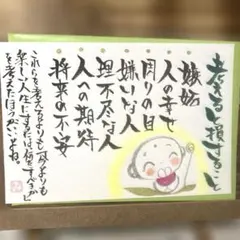 考えると損すること
嫉妬
人の幸せ
周りの目
嫌いな人
理不尽な人
人への期待
将来の不安
これらを考えるよりも何よりも
楽しい人生にするには何をすべきか
を考えたほうがいいよね。